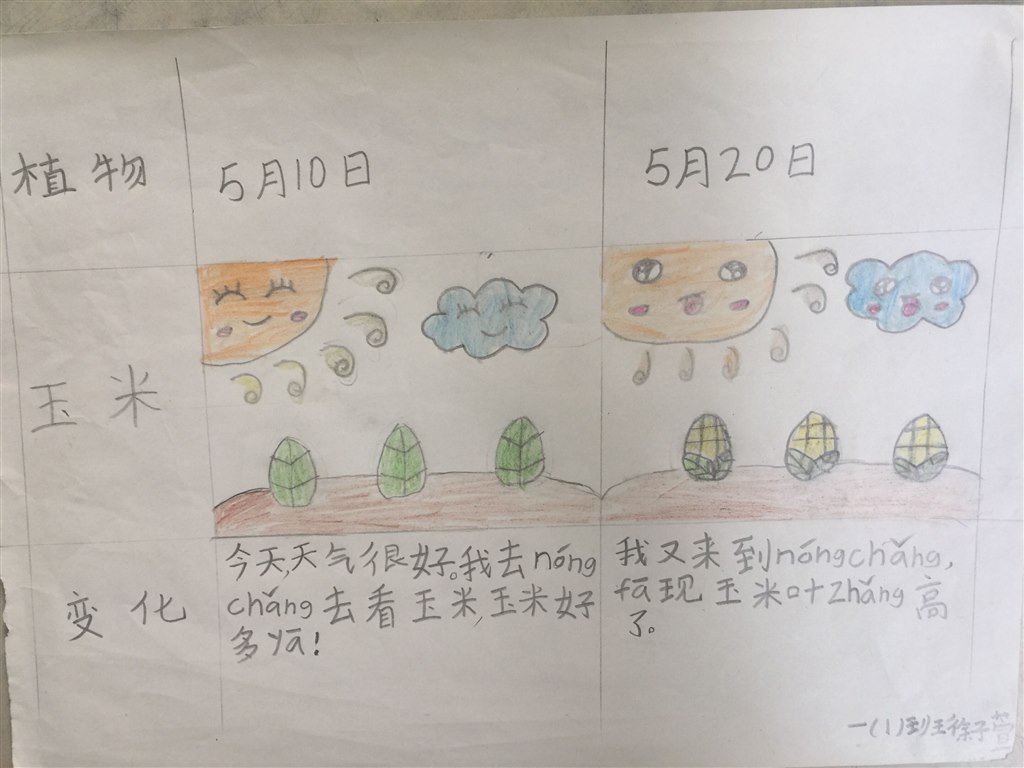 植物
5月10日
5月20日
玉米
变化
今天,天气很好。我去nóng
chǎng去看玉米,玉米好
多yā!
我又来到nóngchǎng,
fā现玉米叶zhǎng高
了。
一(1)班徐子萱